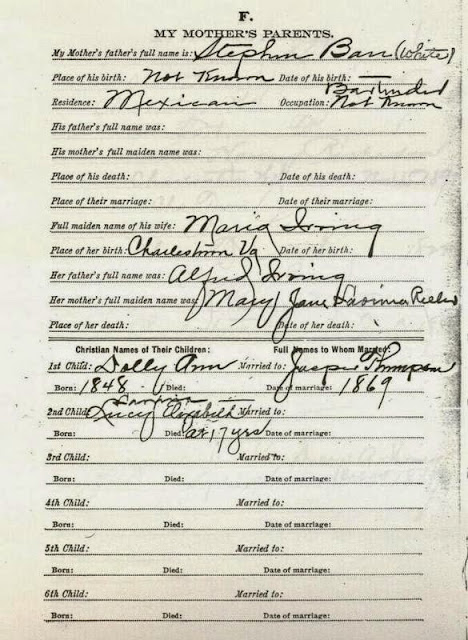 F.
MY MOTHER'S PARENTS.
My Mother's father's full name is: Stephen Barr (White)
Place of his birth: Not Known Date of his birth: —
Residence: Mexican Occupation: Bartender Not Known
His father's full name was:
His mother's full maiden name was:
Place of his death: Date of his death:
Place of their marriage: Date of their marriage:
Full maiden name of his wife: Maria Irving
Place of her birth: Charlestown Va Date of her birth:
Her father's full name was: Alfred Irving
Her mother's full maiden name was: (Mary) Jane Lavinia
Place of her death: Date of her death:
Christian Names of Their Children: Full Names to Whom Married:
1st Child: Dolly Ann Married to: Jasper Thompson
Born: 1848 Date of marriage: 1869
Lavinia
2nd Child: Lucy Elizabeth Married to:
Born: Died: at 17 yrs Date of marriage:
3rd Child: Married to:
Born: Died: Date of marriage:
4th Child: Married to:
Born: Died: Date of marriage:
5th Child: Married to:
Born: Died: Date of marriage:
6th Child: Married to:
Born: Died: Date of marriage: